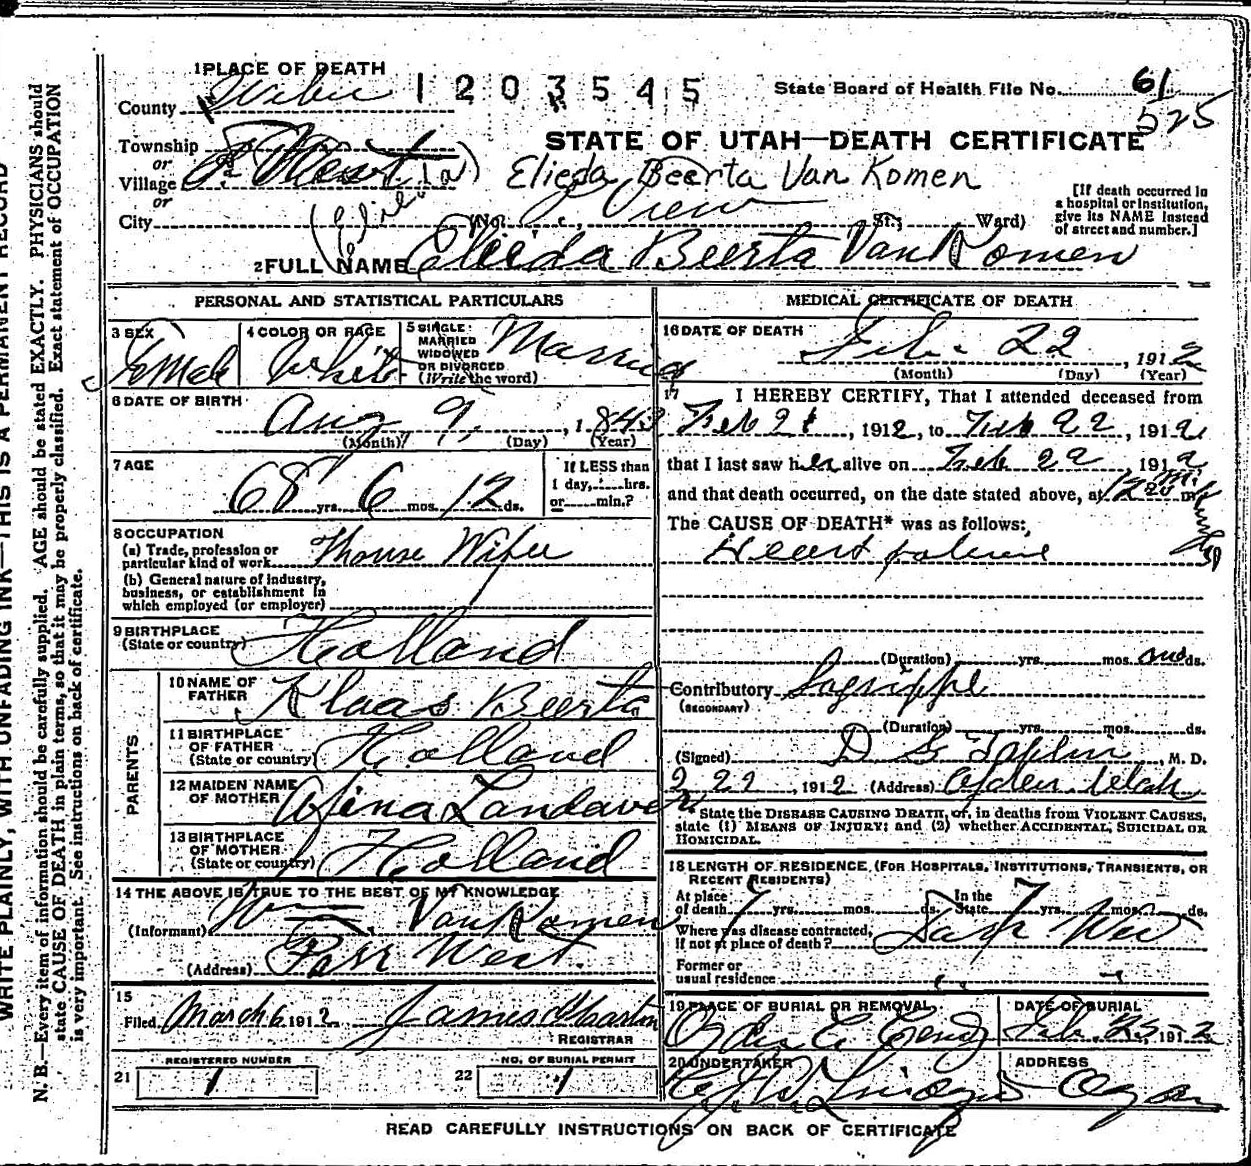 WRITE PLAINLY, WITH UNFADING INK—THIS IS A PERMANENT RECORD
N. B.—Every item of information should be carefully supplied. AGE should be stated EXACTLY. PHYSICIANS should
state CAUSE OF DEATH in plain terms, so that it may be properly classified. Exact statement of OCCUPATION
is very important. See instructions on back of certificate.
1 PLACE OF DEATH 1203545 State Board of Health File No. 61
County Weber 525
STATE OF UTAH—DEATH CERTIFICATE
Township
or
Village
or
Elieda Beerta Van Komen
View
City (No. St.; Ward)
[If death occurred in
a hospital or institution,
give its NAME instead
of street and number.]
2 FULL NAME Elieida Beerta Van Komen
PERSONAL AND STATISTICAL PARTICULARS
3 SEX Female
4 COLOR OR RACE White
5 SINGLE
MARRIED
WIDOWED
OR DIVORCED
(Write the word) Married
6 DATE OF BIRTH
Aug 9, 1843
(Month) (Day) (Year)
7 AGE
68 yrs. 6 mos. 12 ds.
If LESS than
1 day, hrs.
or min.?
8 OCCUPATION
(a) Trade, profession or
particular kind of work House Wife
(b) General nature of industry,
business, or establishment in
which employed (or employer)
9 BIRTHPLACE
(State or country) Holland
PARENTS
10 NAME OF
FATHER Klaas Beerta
11 BIRTHPLACE
OF FATHER
(State or country) Holland
12 MAIDEN NAME
OF MOTHER
13 BIRTHPLACE
OF MOTHER
(State or country) Holland
14 THE ABOVE IS TRUE TO THE BEST OF MY KNOWLEDGE
(Informant) Wm Van Komen
(Address) Farr West.
15
Filed March 6 1912 James
REGISTRAR
REGISTERED NUMBER
21 1
NO. OF BURIAL PERMIT
22 1
MEDICAL CERTIFICATE OF DEATH
16 DATE OF DEATH
Feb. 22, 1912
(Month) (Day) (Year)
17 I HEREBY CERTIFY, That I attended deceased from
Feb 21, 1912, to Feb 22, 1912
that I last saw her alive on Feb 22, 1912
and that death occurred, on the date stated above, at 12 m.
The CAUSE OF DEATH* was as follows:
Heart failure
(Duration) yrs. mos. ds.
Contributory Lagrippe
(SECONDARY)
(Duration) yrs. mos. ds.
(Signed) M. D.
2 22, 1912 (Address) Ogden Utah
* State the DISEASE CAUSING DEATH, or, in deaths from VIOLENT CAUSES,
state (1) MEANS OF INJURY; and (2) whether ACCIDENTAL, SUICIDAL OR
HOMICIDAL.
18 LENGTH OF RESIDENCE (FOR HOSPITALS, INSTITUTIONS, TRANSIENTS, OR
RECENT RESIDENTS)
At place
of death 7 yrs. mos. ds.
In the
State 7 yrs. mos. ds.
Where was disease contracted,
if not at place of death?
Former or
usual residence
19 PLACE OF BURIAL OR REMOVAL
Ogden
DATE OF BURIAL
Feb. 25, 1912
20 UNDERTAKER
ADDRESS
Ogden
READ CAREFULLY INSTRUCTIONS ON BACK OF CERTIFICATE